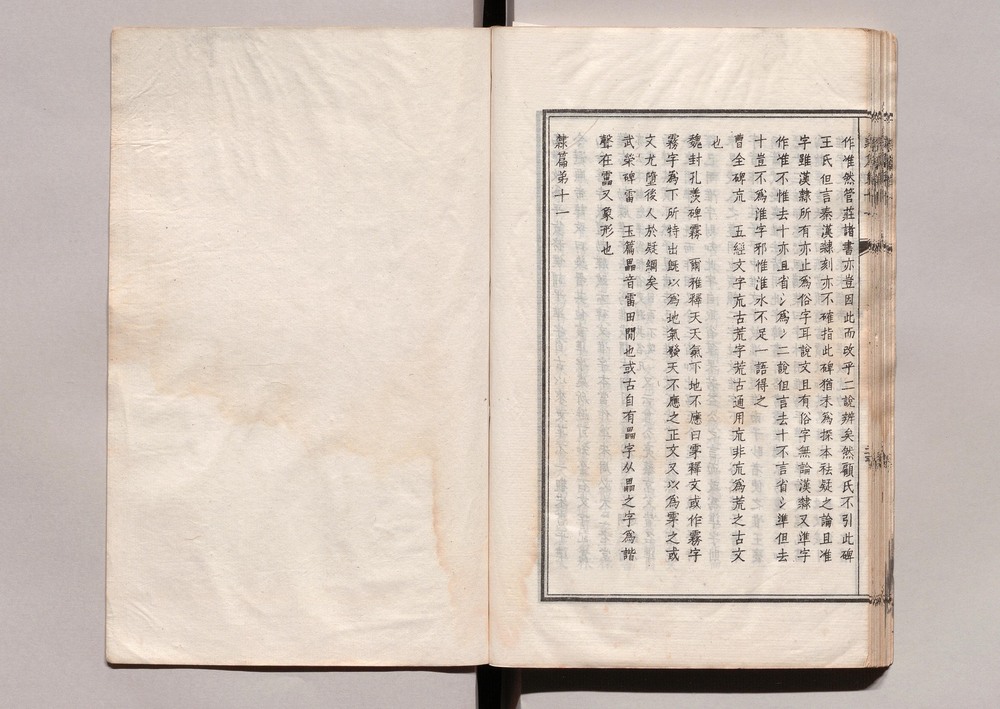 作惟然管莊諸書亦豈因此而改乎二說辨矣然顧氏不引此碑
王氏但言秦漢隸刻亦不確指此碑猶未為探本祛疑之論且准
字雖漢隸所有亦止為俗字耳說文且有俗字無論漢隸又準字
作惟不惟去十亦且省氵為冫二說但言去十不言省氵準但去
十豈不為淮字邪惟淮水不足一語得之
曹全碑巟　五經文字巟古荒字荒古通用巟非巟為荒之古文
也
魏封孔羨碑霧　爾雅釋天天氣下地不應曰雺釋文或作霧字
霧字為下所特出既以為地氣發天不應之正文又以為雺之或
文尤墮後人於疑網矣
武榮碑雷　玉篇畾音雷田閒也或古自有畾字从畾之字為諧
聲在靁又象形也
隸篇第十一